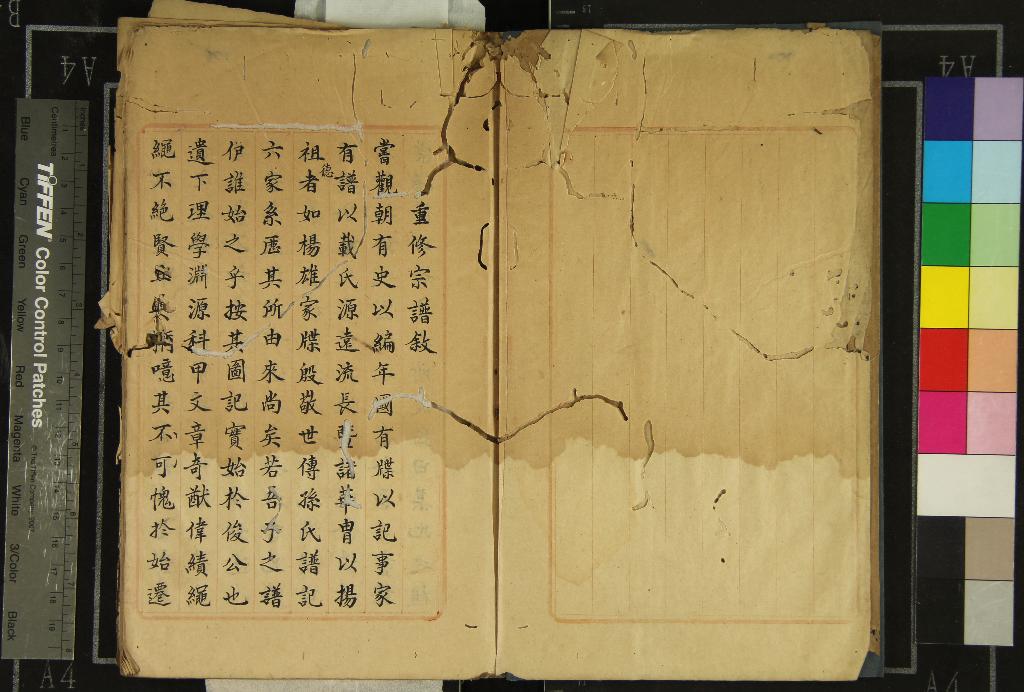 重修宗譜敘
嘗觀朝有史以編年國有牒以記事家
有譜以載氏源遠流長暨諸華胄以揚
祖德者如楊雄家牒殷敬世傳孫氏譜記
六家系歷其所由來尚矣若吾予之譜
伊誰始之乎按其圖記實始於俊公也
遺下理學淵源科甲文章奇猷偉績繩
繩不絕賢噫其不可愧於始遷
TIFFEN Color Control Patches
Centimetres
Inches
Blue Cyan Green Yellow Red Magenta White 3/Color Black
A4
A4
A4
A4